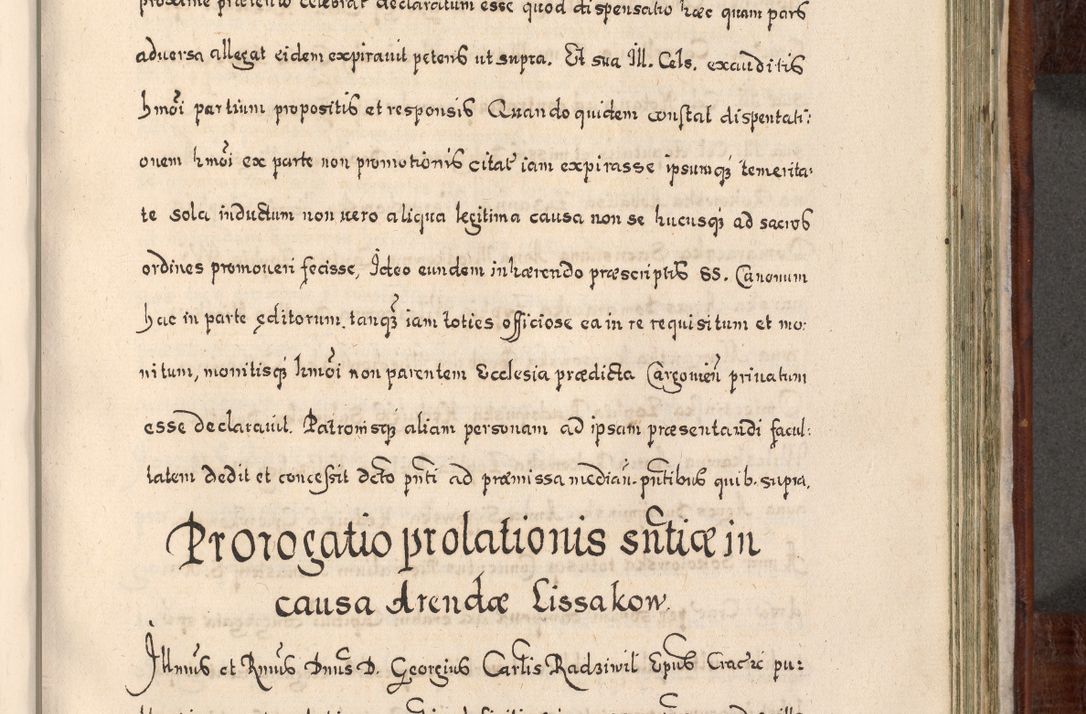 proxime praeterito celebrat declaratum esse quod dispensatio haec quam pars
adversa allegat eidem expirauit petens ut supra. Et sua Ill. Cels. exauditis
hmõi partium propositis et responsis Quando quidem constat dispentati:
onem hmõi ex parte non promotionis citat iam expirasse ipsumqȝ temerita-
te sola inductum non uero aliqua legitima causa non se hucusqȝ ad sacros
ordines promoueri fecisse, Ideo eundem inhærendo præscriptis SS. Canonum
hac in parte ęditorum. tanqȝ iam toties officiose ea in re requisitum et mo:
nitum, monitisqȝ hmõi non parentem Ecclesia prædicta Cargouieñ priuatum
esse declarauit. Patronisqȝ aliam personam ad ipsam præsentandi facul:
tatem dedit et concessit dcto pñti ad præmissa mediañ. pñtibus quib. supra.
Prorogatio prolationis sñtiæ in
causa Arendæ Lissakow.
Illmus et Rmus Dnus D. Georgius Carlis Radziwil Epus Crac &c pu: